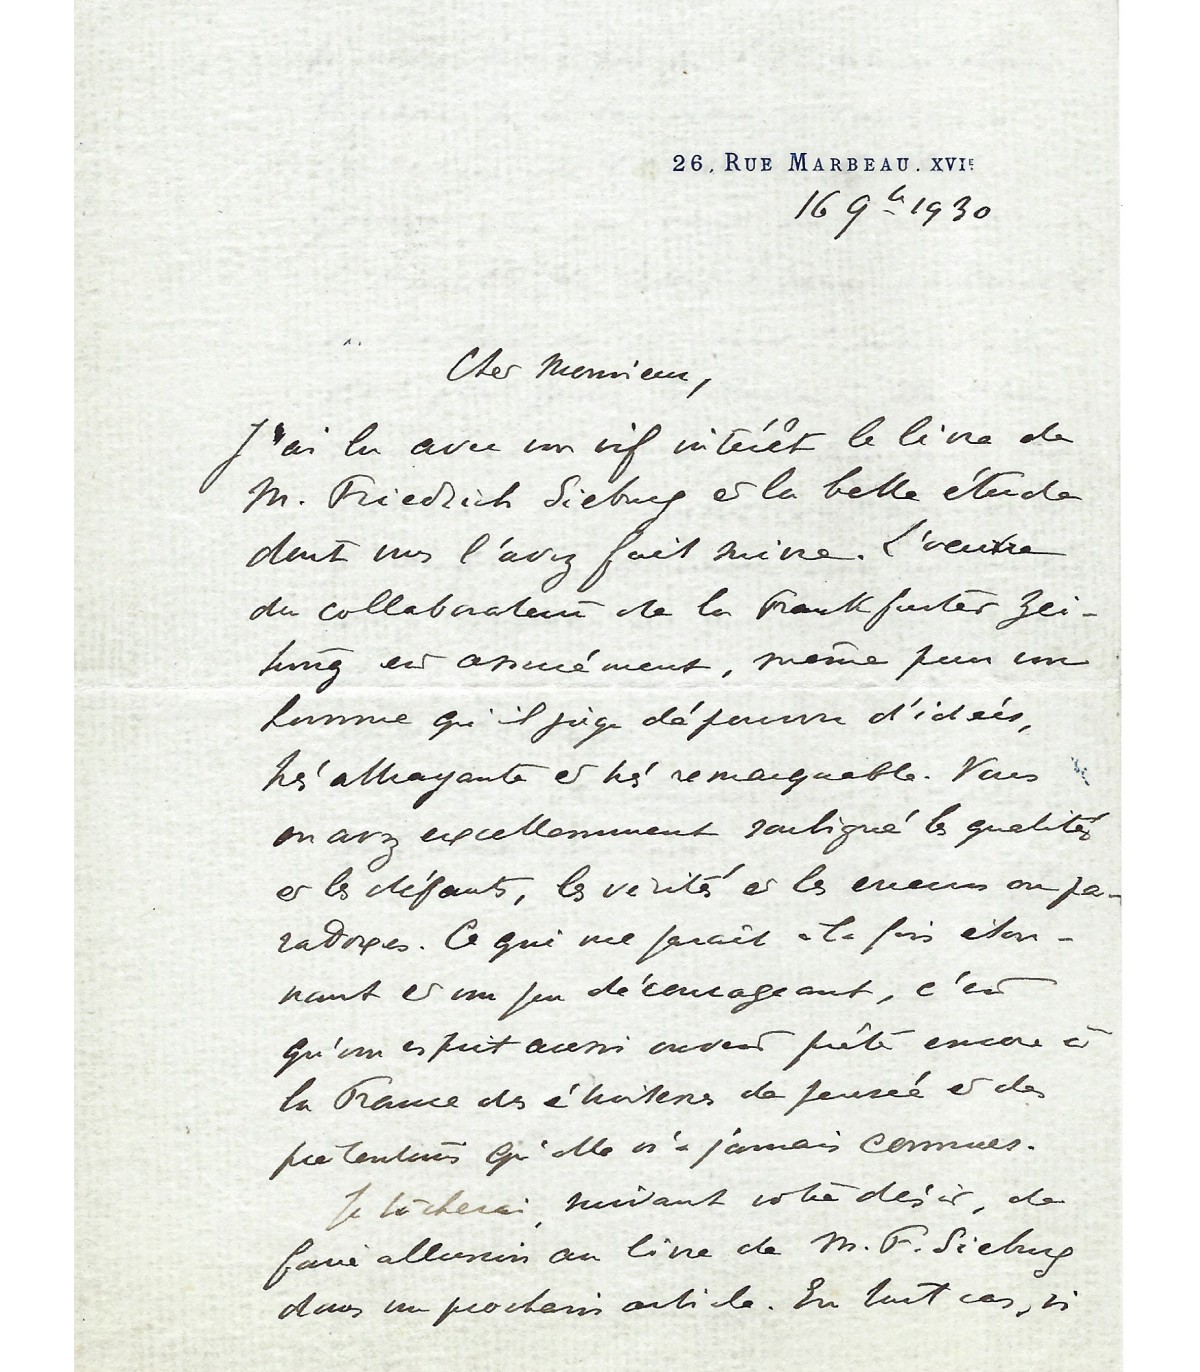 26, RUE MARBEAU. XVIE
16 9bre 1930
Cher Monsieur,
J'ai lu avec un vif intérêt le livre de
M. Friedrich Sieburg et la belle étude
dont vous l'avez fait suivre. L'œuvre
du collaborateur de la Frankfurter Zei-
tung est assurément, même pour un
homme qu'il juge dépourvu d'idées,
très attrayante et très remarquable. Vous
en avez excellemment souligné les qualités
et les défauts, les vérités et les erreurs ou pa-
radoxes. Ce qui me paraît à la fois éton-
nant et un peu décourageant, c'est
qu'un esprit aussi ouvert prête encore à
la France des étroitesses de pensée et des
prétentions qu'elle n'a jamais connues.
Je tâcherai, suivant votre désir, de
faire allusion au livre de M. F. Sieburg
dans un prochain article. En tout cas, si